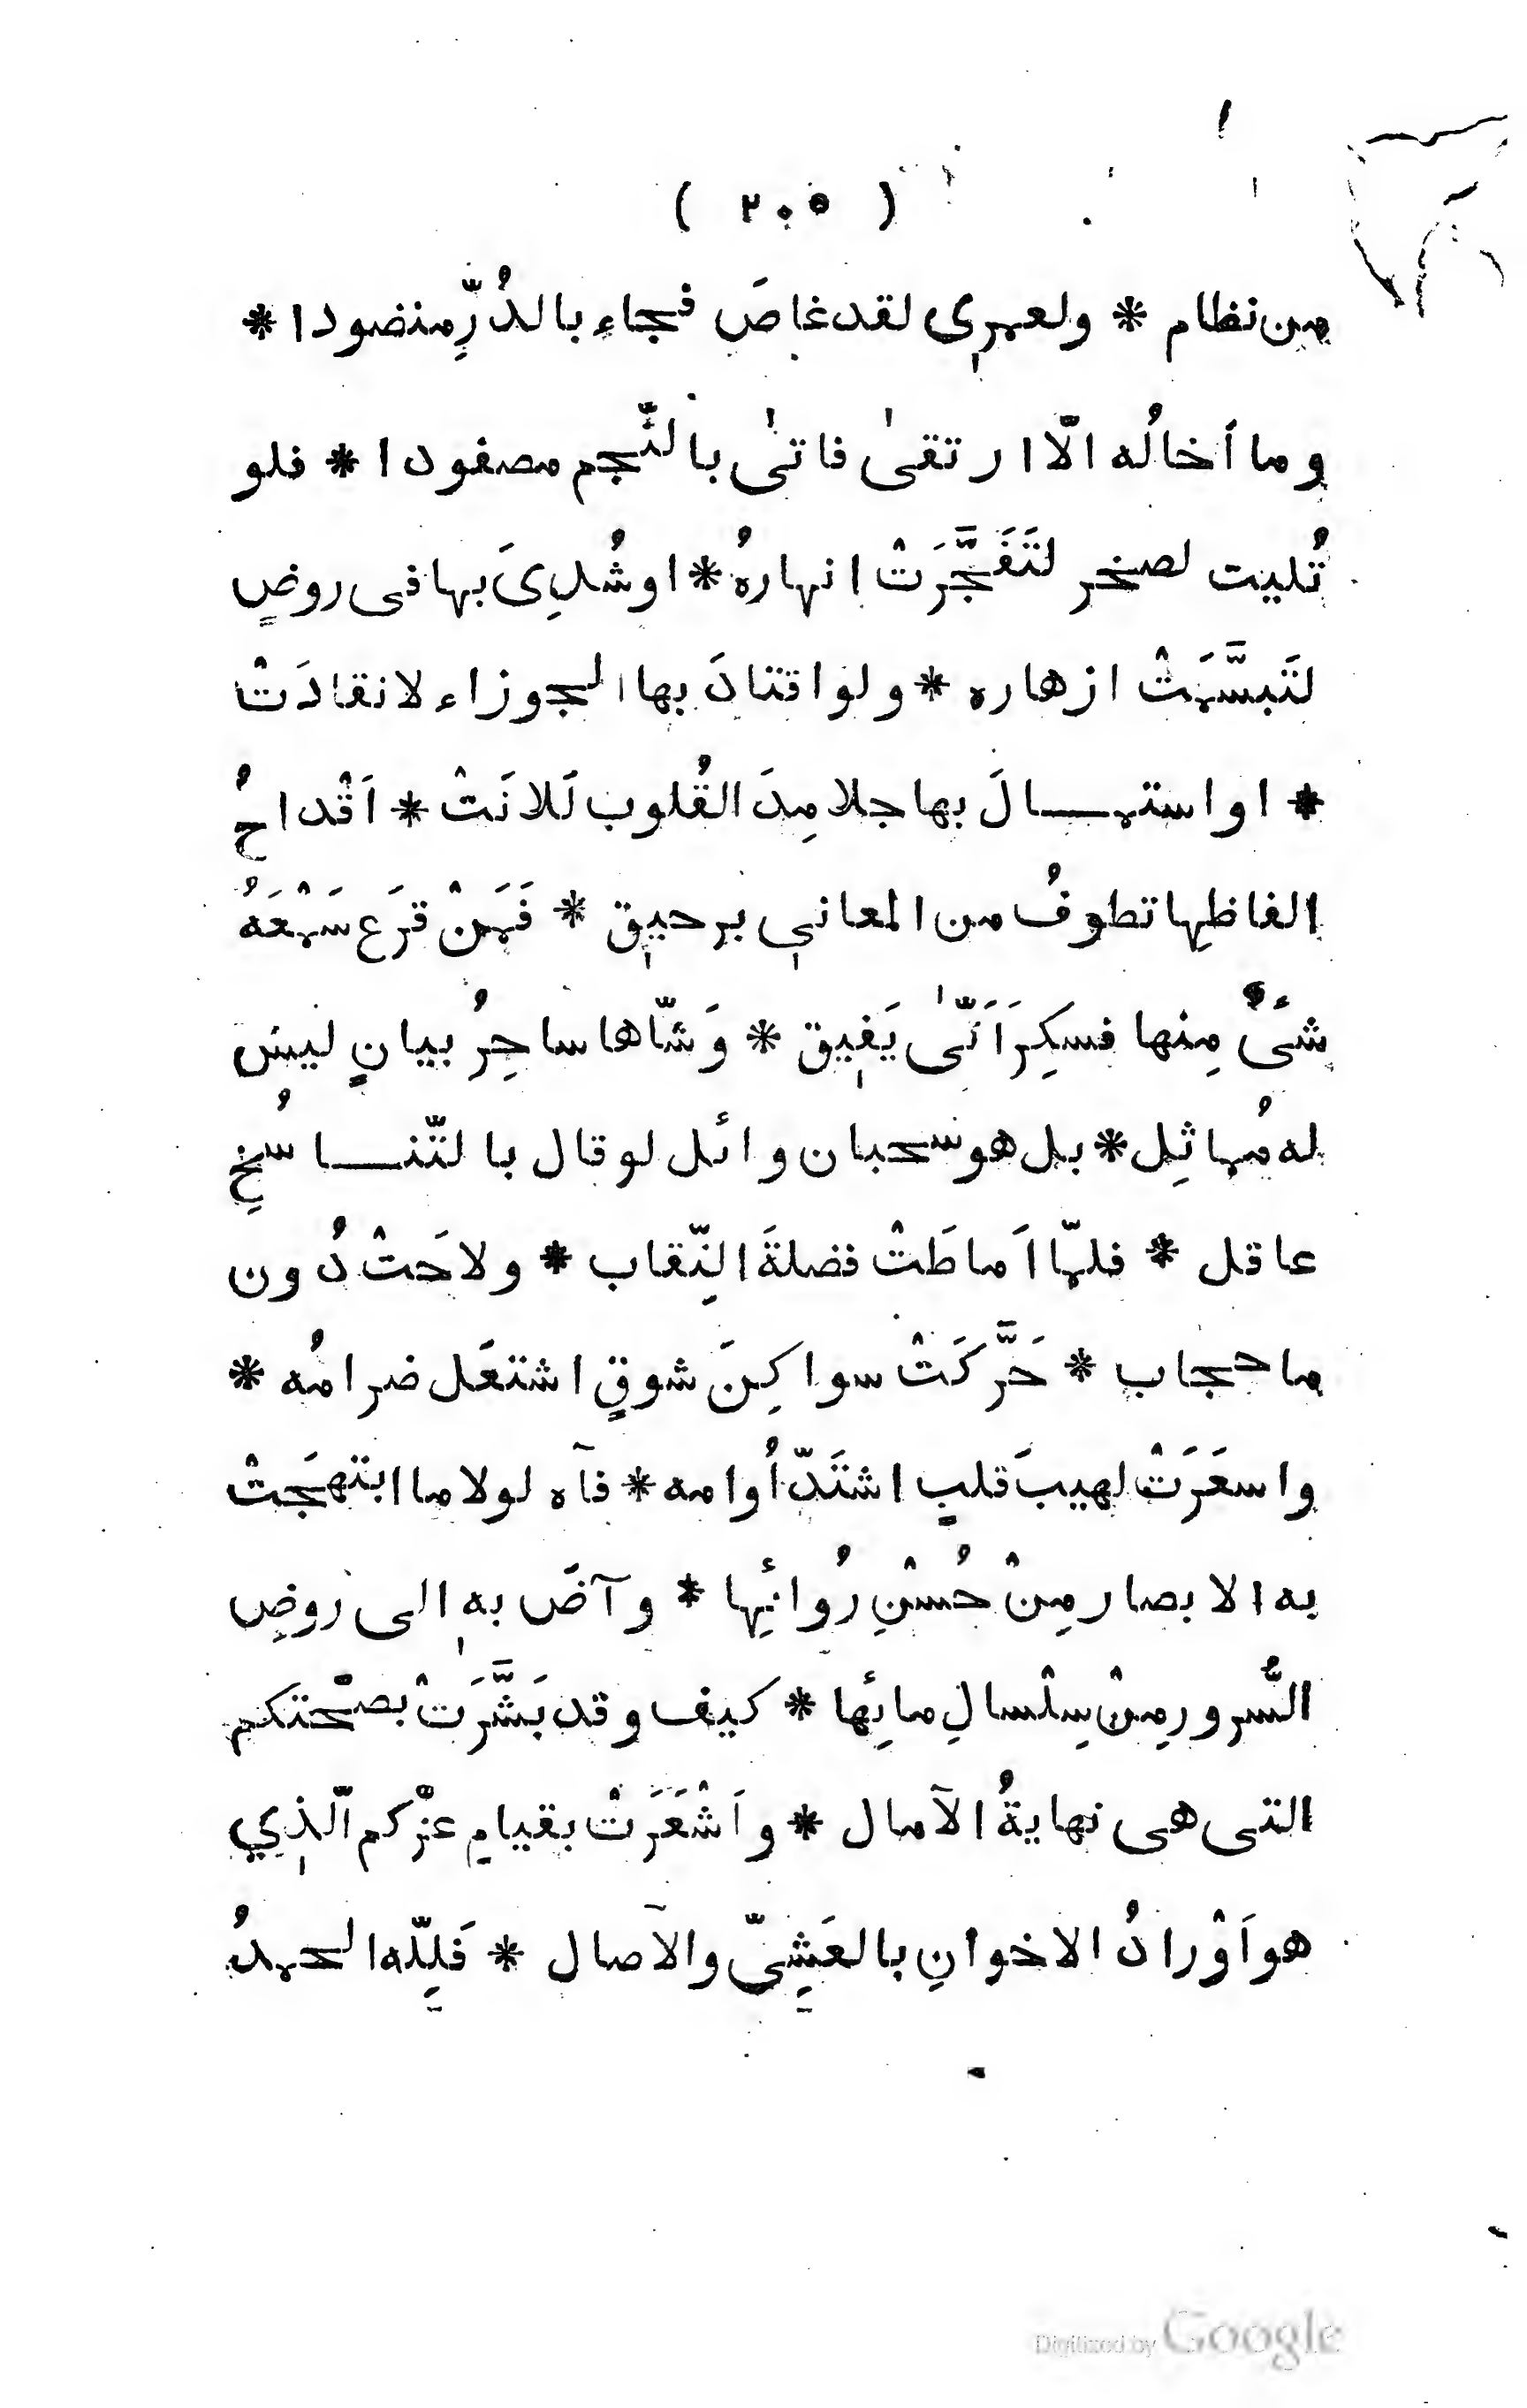 ( ٢٠٥ )
من نظام * ولعمري لقد غاصَ فجاء بالدُرِّ منضودا *
وما أخالُه الّا ارتقىٰ فاتىٰ بالنّجم مصفودا * فلو
تُليت لصخر لتَفَجَّرَتْ انهارهُ * اوشُدِىَ بها فى روضٍ
لتَبسَّمَتْ ازهاره * ولواقتادَ بها الجوزاء لانقادَتْ
* اواستمـــالَ بها جلامِدَ القُلوب لَلانَتْ * اَقْداحُ
الفاظِها تطوفُ من المعاني برحيق * فَمَنْ قرَع سَمْعَهُ
شَىءٌ مِنها فسكِرَ اَنّىٰ يَفيق * وَشّاها ساحِرُ بيانٍ ليس
له مُماثِل * بل هو سحبان وائل لو قال بالتّنـــاسُخِ
عاقل * فلمّا اَماطَتْ فضلةَ النِّقاب * ولاحَتْ دُون
ما حجاب * حَرَّكَتْ سواكِنَ شوقٍ اشتعَل ضرامُه *
واسعَرَتْ لهيبَ قلبٍ اشتَدّ أُوامه * فآه لولا ما ابتهجَتْ
به الابصار مِنْ حُسْنِ رُوائِها * وآضَ به الى روضِ
السُّرور مِنْ سِلْسالِ مائِها * كيف وقد بَشَّرَتْ بصحّتكم
التى هى نهايةُ الآمال * واَشْعَرَتْ بقيامِ عزّكم الّذي
هو اَوْرادُ الاخوانِ بالعَشِىّ والآصال * فَلِلّه الحمدُ
Digitized by Google